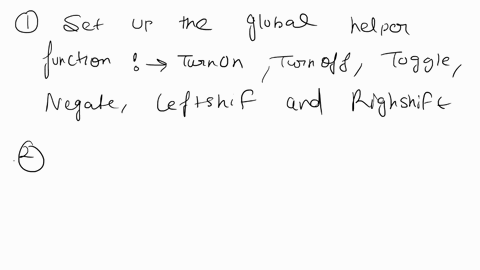 ① Set up the global helper
function :→ TurnOn, Turnoff, Toggle,
Negate, Leftshif and Righshift
②